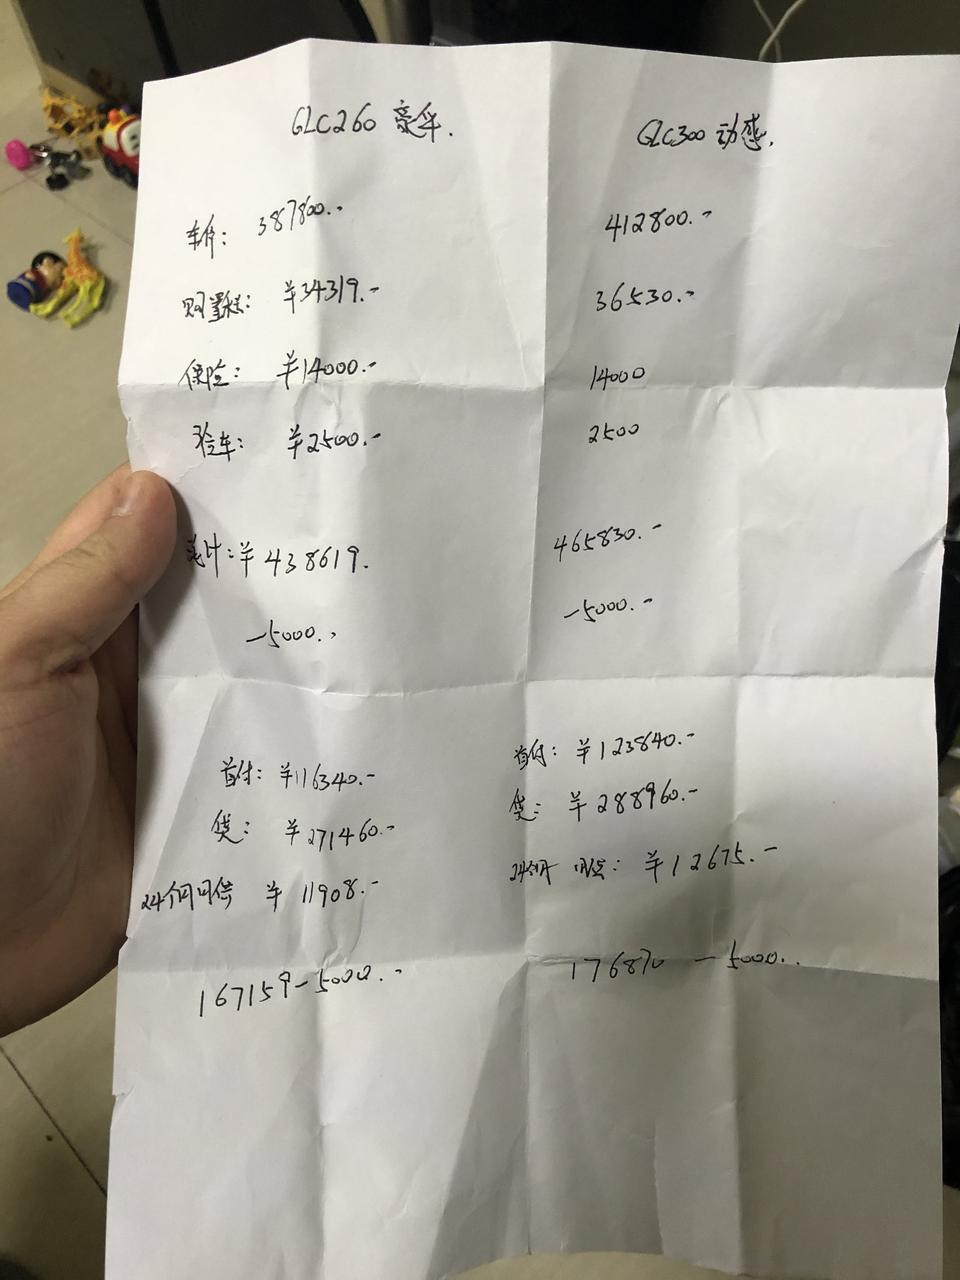 GLC260 豪华.
GLC300 动感.
车价: 387800.-
412800.-
购置税: ¥34319.-
36530.-
保险: ¥14000.-
14000
验车: ¥2500.-
2500
总计: ¥438619.
465830.-
-5000.-
-5000.-
首付: ¥116340.-
首付: ¥123840.-
贷: ¥271460.-
贷: ¥288960.-
24个月月供 ¥11908.-
24个月 月供: ¥12675.-
167159-5000.-
176870 -5000..